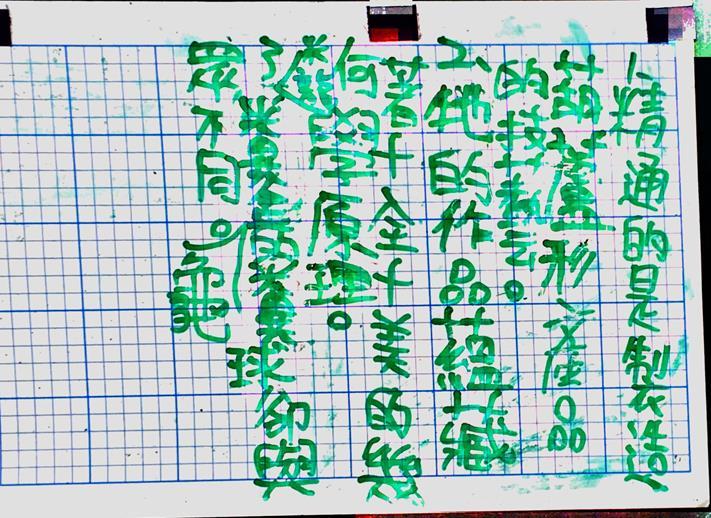 1、精通的是製造
葫蘆形產品
的技藝。
2、他的作品蘊藏
著十全十美的幾
何學原理。
3、糞金龜的糞球卻與
眾不同。